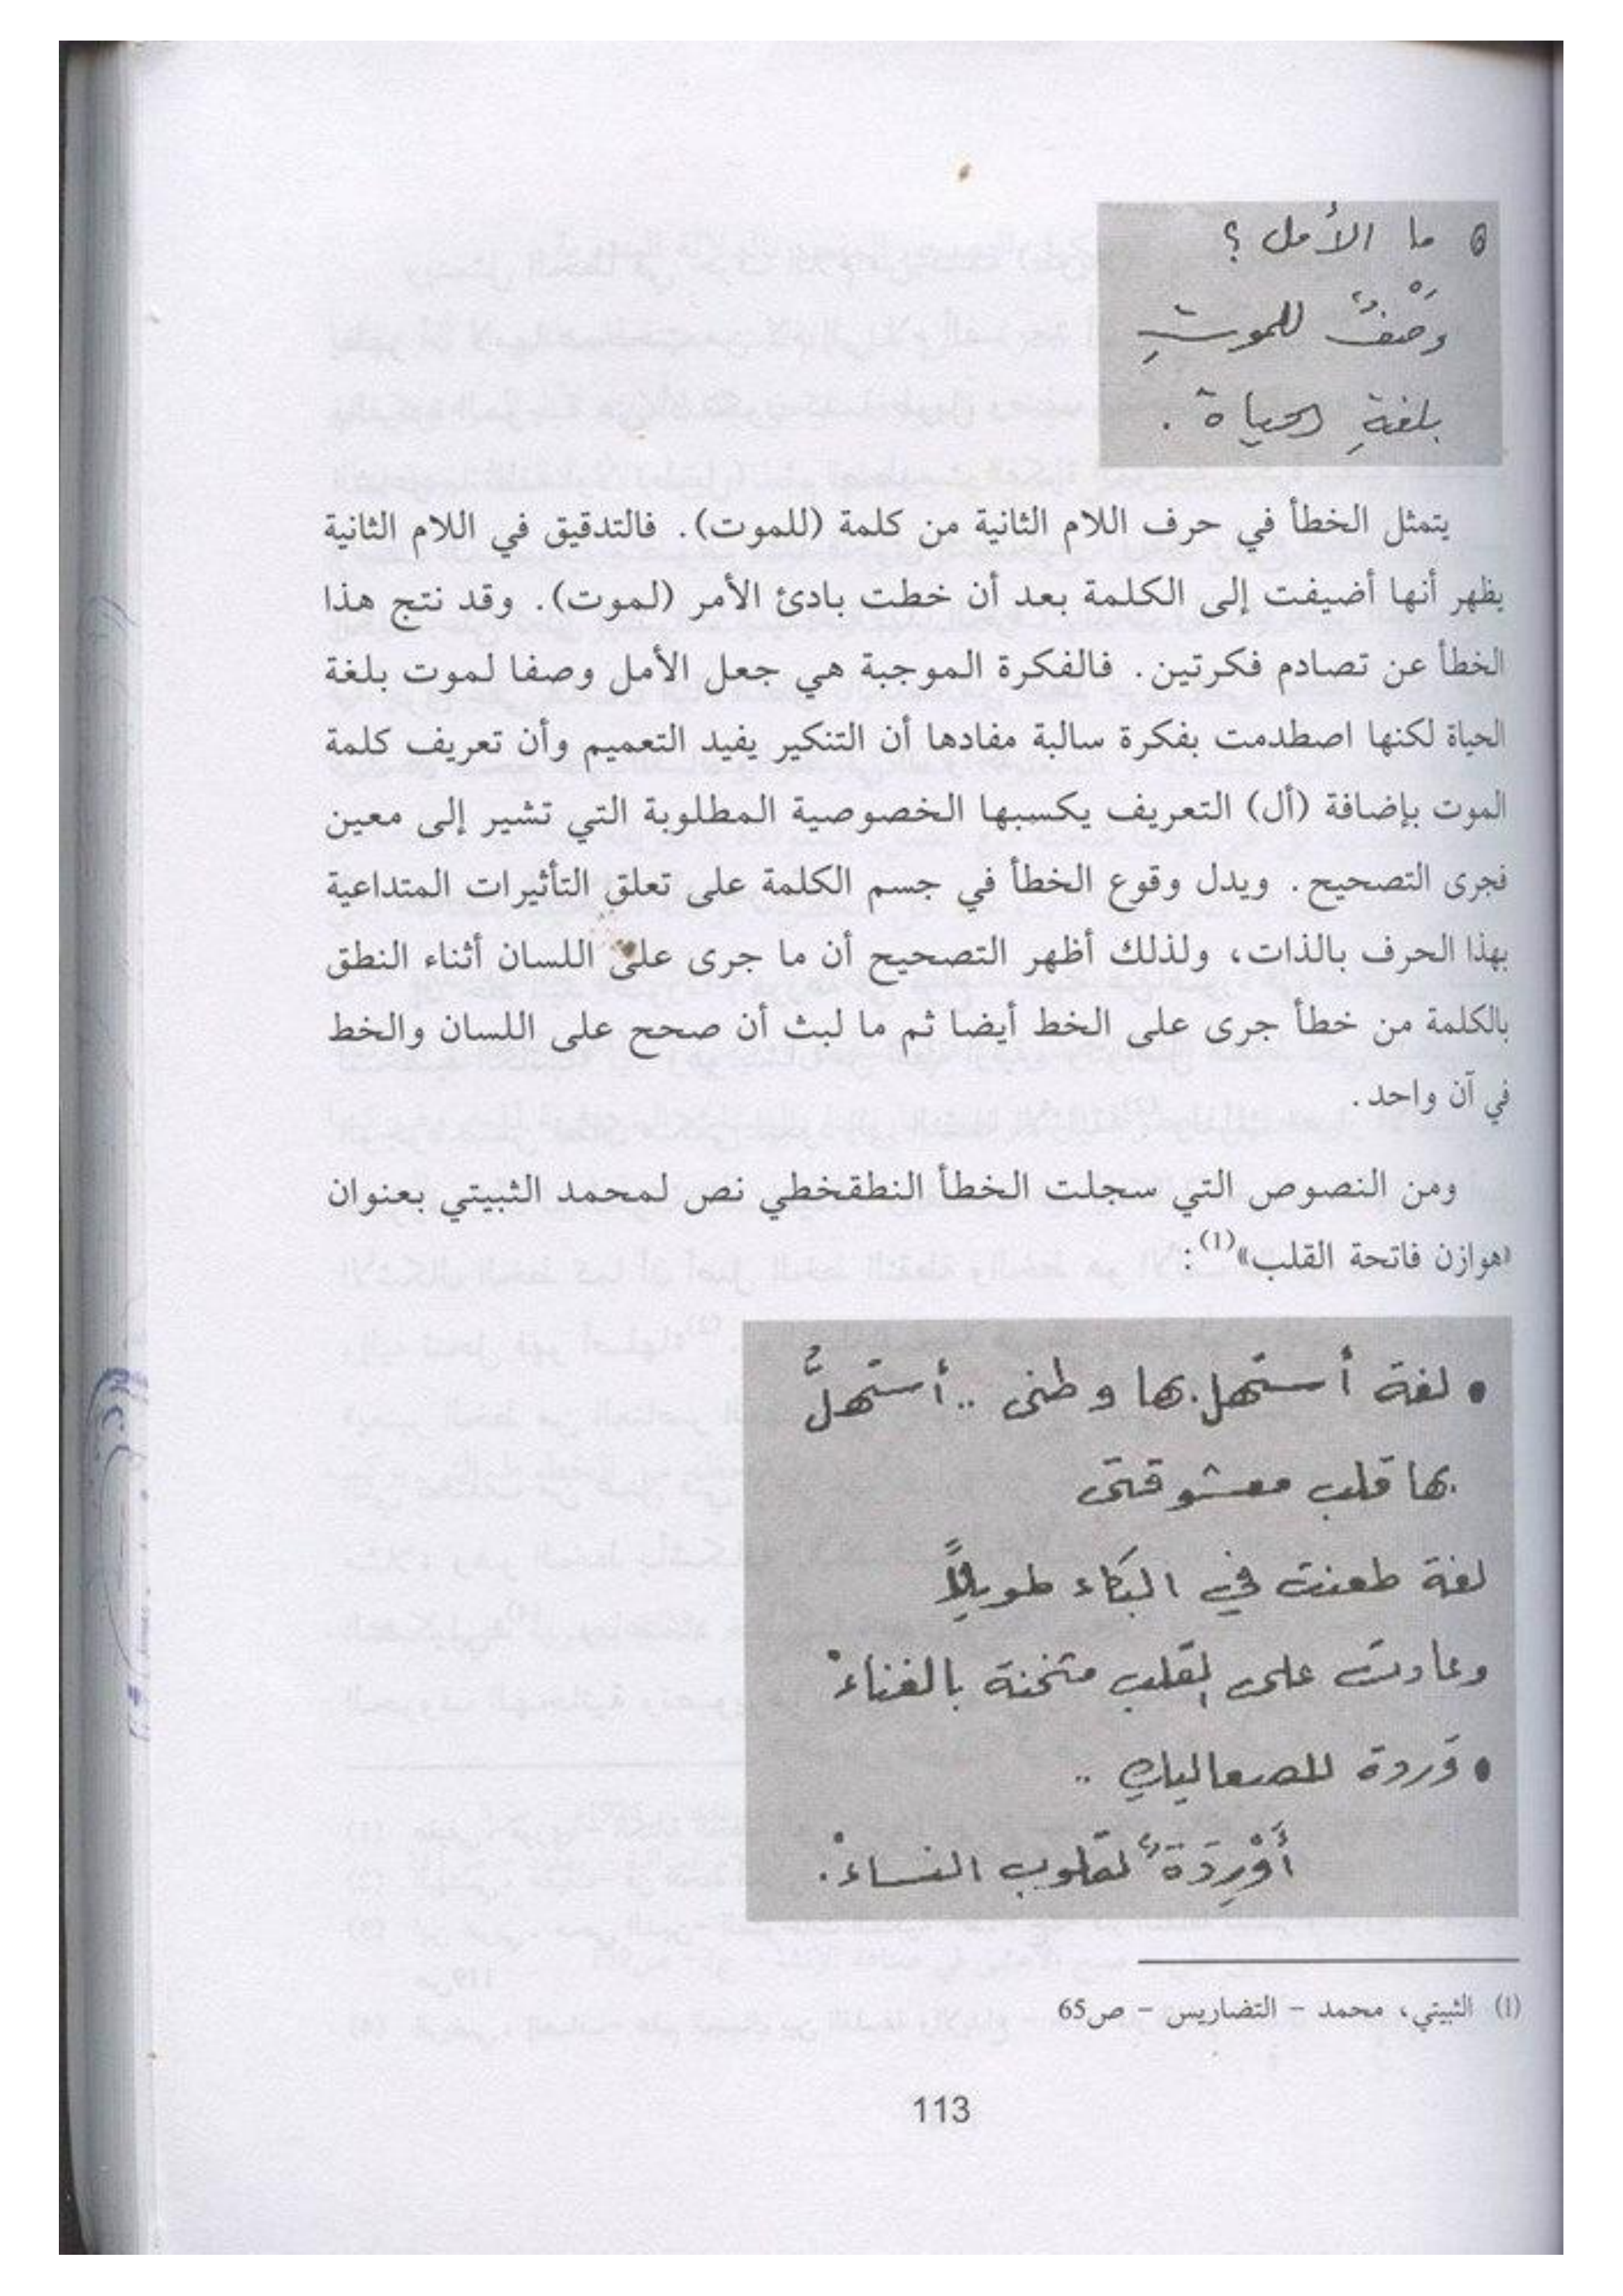 • ما الأمل ؟
وَصْفٌ للموتِ
بلغةِ الحياة .
يتمثل الخطأ في حرف اللام الثانية من كلمة (للموت). فالتدقيق في اللام الثانية
يظهر أنها أضيفت إلى الكلمة بعد أن خطت بادئ الأمر (لموت). وقد نتج هذا
الخطأ عن تصادم فكرتين. فالفكرة الموجبة هي جعل الأمل وصفا لموت بلغة
الحياة لكنها اصطدمت بفكرة سالبة مفادها أن التنكير يفيد التعميم وأن تعريف كلمة
الموت بإضافة (أل) التعريف يكسبها الخصوصية المطلوبة التي تشير إلى معين
فجرى التصحيح. ويدل وقوع الخطأ في جسم الكلمة على تعلق التأثيرات المتداعية
بهذا الحرف بالذات، ولذلك أظهر التصحيح أن ما جرى على اللسان أثناء النطق
بالكلمة من خطأ جرى على الخط أيضا ثم ما لبث أن صحح على اللسان والخط
في آن واحد.
ومن النصوص التي سجلت الخطأ النطقخطي نص لمحمد الثبيتي بعنوان
«هوازن فاتحة القلب»(1):
• لغة أستهل بها وطنى .. أستهلُّ
بها قلب معشوقتى
لغة طعنت في البكاء طويلاً
وعادت على القلب مثخنة بالغناءْ
• وَردة للصعاليكِ ..
أَوْرِدَةٌ لقلوب النساءْ.
(1) الثبيتي، محمد - التضاريس - ص65
113